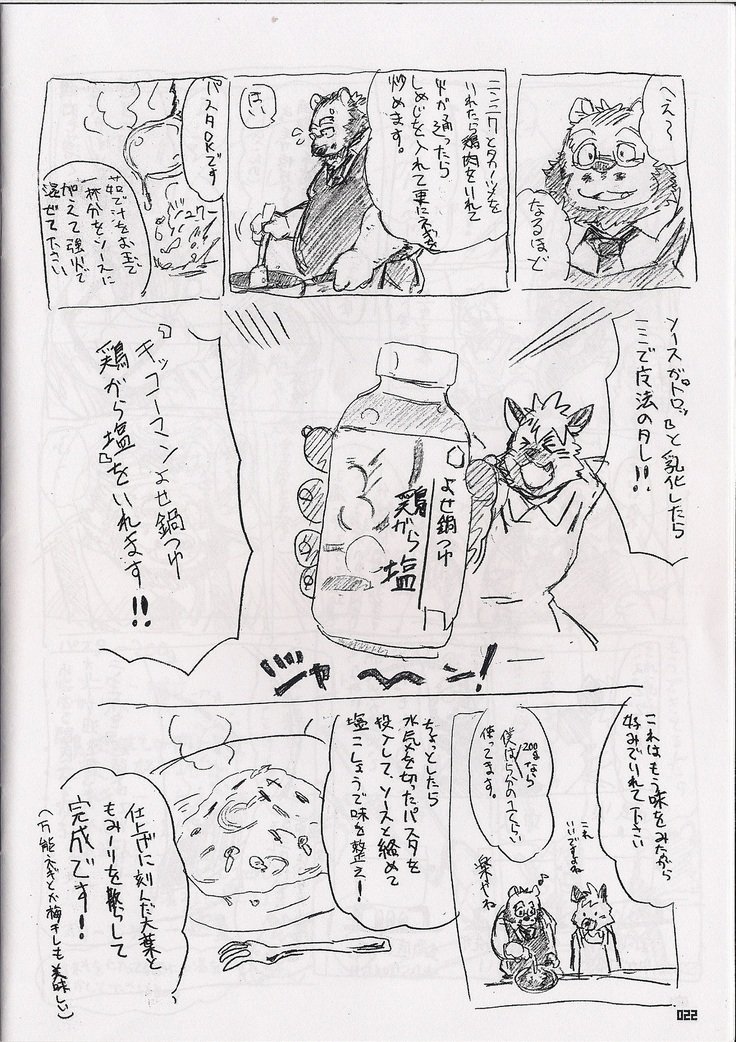 へえ〜
なるほど
ニンニクとタカノツメを
いれたら鶏肉をいれて
火が通ったら
しめじを入れて更に
炒めます。
はい
パスタOKです
茹で汁をお玉で
一杯分をソースに
加えて強火で
混ぜて下さい
ソースが『ドロッ』と乳化したら
ここで皮法のタレ!!
よせ鍋つゆ
鶏がら塩
『キッコーマンよせ鍋つゆ
鶏がら塩』をいれます!!
ジャーン!
これはもう味をみながら
好みでいれて下さい
200gなら
僕は
使ってます。
これ
いいですよね
楽やね
ちょっとしたら
水気を切ったパスタを
投入して、ソースと絡めて
塩こしょうで味を整え!
仕上げに刻んだ大葉と
もみのりを散らして
完成です!
(万能ネギとか梅干しも美味しい)
022